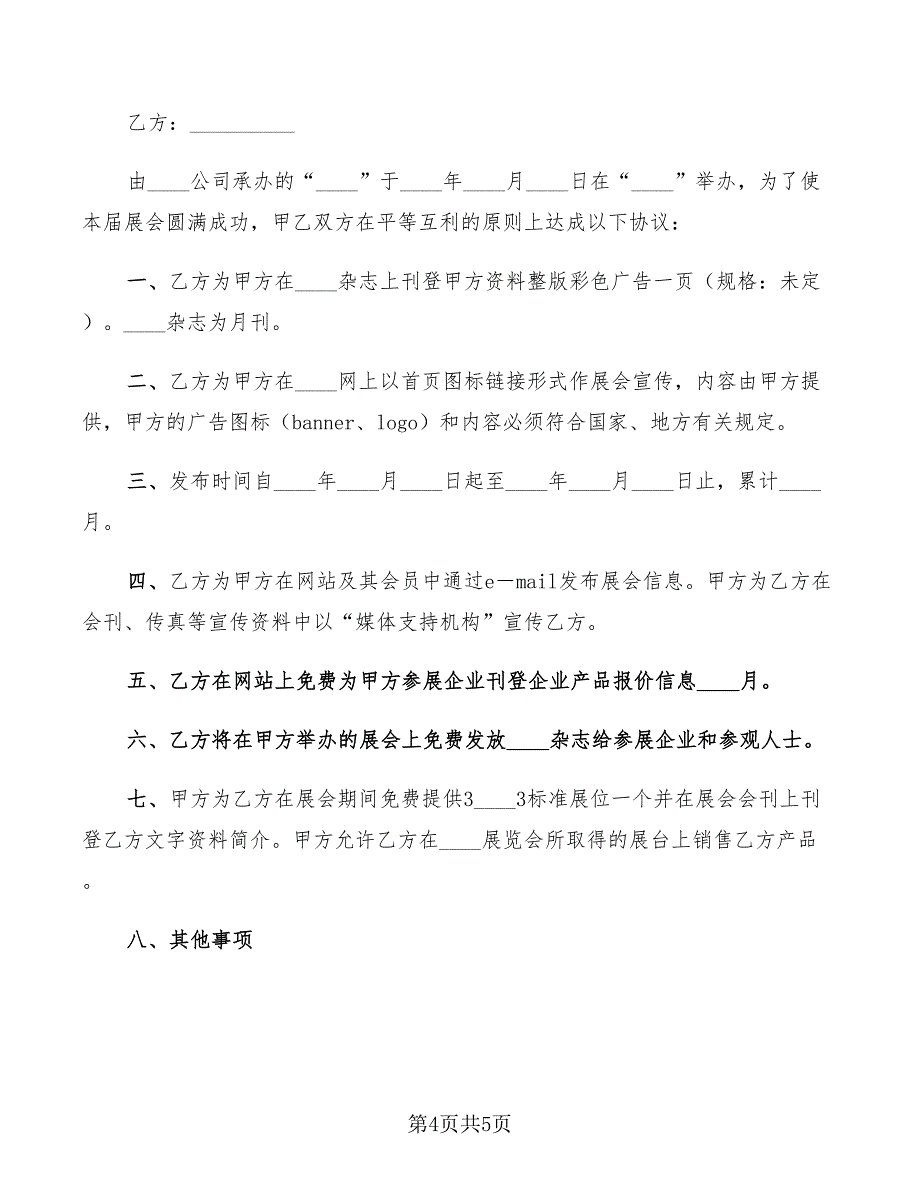 乙方：__________
由____公司承办的“____”于____年____月____日在“____”举办，为了使
本届展会圆满成功，甲乙双方在平等互利的原则上达成以下协议：
一、乙方为甲方在____杂志上刊登甲方资料整版彩色广告一页（规格：未定
）。____杂志为月刊。
二、乙方为甲方在____网上以首页图标链接形式作展会宣传，内容由甲方提
供，甲方的广告图标（banner、logo）和内容必须符合国家、地方有关规定。
三、发布时间自____年____月____日起至____年____月____日止，累计____
月。
四、乙方为甲方在网站及其会员中通过e－mail发布展会信息。甲方为乙方在
会刊、传真等宣传资料中以“媒体支持机构”宣传乙方。
五、乙方在网站上免费为甲方参展企业刊登企业产品报价信息____月。
六、乙方将在甲方举办的展会上免费发放____杂志给参展企业和参观人士。
七、甲方为乙方在展会期间免费提供3____3标准展位一个并在展会会刊上刊
登乙方文字资料简介。甲方允许乙方在____展览会所取得的展台上销售乙方产品
。
八、其他事项
第4页共5页